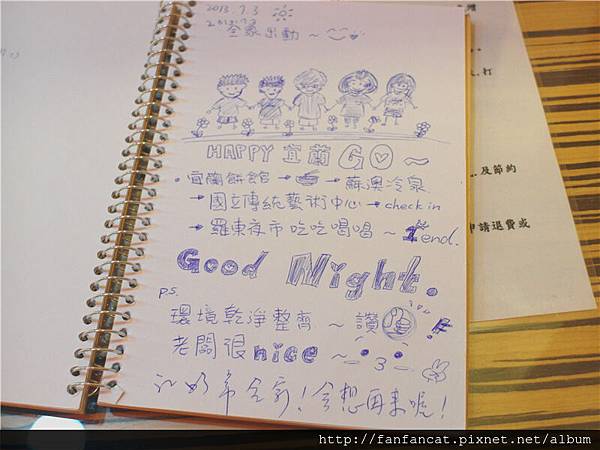 2013.7.3
全家出動~
HAPPY 宜蘭 GO~
• 宜蘭餅館 → → 蘇澳冷泉
→ 國立傳統藝術中心 → check in
→ 羅東夜市 吃吃喝喝 ~ 1st end.
Good Night.
P.S.
環境乾淨整齊 ~ 讚 !
老闆很 nice ~ 3
全家!會想再來喔!
打
及節約
申請退費或
http://fanfancat.pixnet.net/album